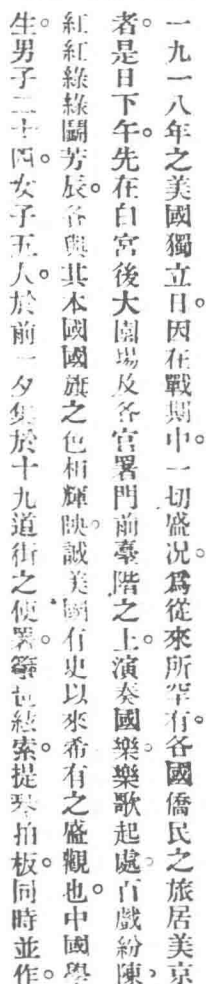 一九一八年之美國獨立日因在戰期中。一切盛况。爲從來所罕有。各國僑民之旅居美京
者。是日下午。先在白宮後大園場及各官署門前臺階之上。演奏國樂。樂歌起處。百戲紛陳。
紅紅綠綠鬭芳辰。各與其本國國旗之色相輝映。誠美國有史以來希有之盛觀也。中國學
生男子二十四女子五人。於前一夕集於十九道街之使署。簫笛絃索。提琴拍板。同時並作。